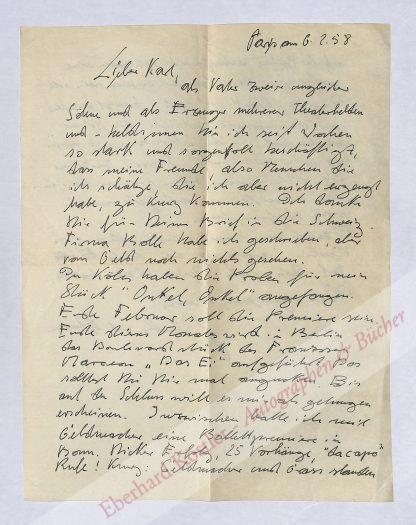 Paris am 6. 2. 58
Lieber Karl,
als Vater zweier ungleicher
Söhne und als Erzeuger mehrerer Theaterhelden
und -heldinnen bin ich seit Wochen
so stark und sorgenvoll beschäftigt,
dass meine Freunde, also Menschen die
ich schätze, die ich aber nicht erzeugt
habe, zu kurz kommen. Ich danke
Dir für Deinen Brief in die Schweiz.
Firma Bolle habe ich geschrieben, aber
vom Geld noch nichts gesehen.
In Köln haben die Proben für mein
Stück "Onkel, Onkel" angefangen.
Ende Februar soll die Premiere sein.
Ende dieses Monates wird in Berlin
das Boulevardstück des Franzosen
Marceau "Das Ei" aufgeführt. Das
solltest Du Dir mal angucken. Bis
auf den Schluss will es mir als gelungen
erscheinen. Inzwischen hatte ich mit
Geldmacher eine Ballettpremiere in
Bonn. Dicker Erfolg, 25 Vorhänge, "da capo"
Rufe! Kurz: Geldmacher und Grass standen
Eberhard Köstler Autographen & Bücher